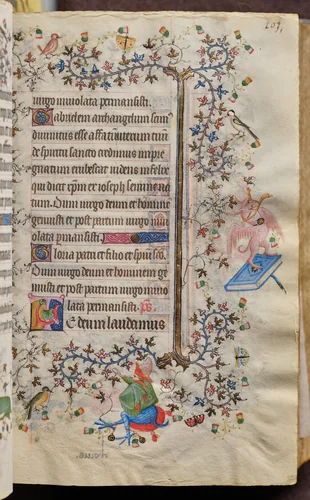 207.
uirgo inuiolata permansisti.
Gabrielem archangelum scim
diuinitus esse affatum uterum tuū
de spiritu sancto credimus impre
gnatum erubescat iudeus infelix
qui dicit xp̄m ex ioseph semine na
tum. Dum uirgo deum et hominem
genuisti et post partum uirgo inui
olata p̄mansisti.
Gloria patri et filio et spūi sco.
Dum uirgo deum et hominem ge
nuisti et post partum uirgo inuio
lata permansisti. ps
Te deum laudamus